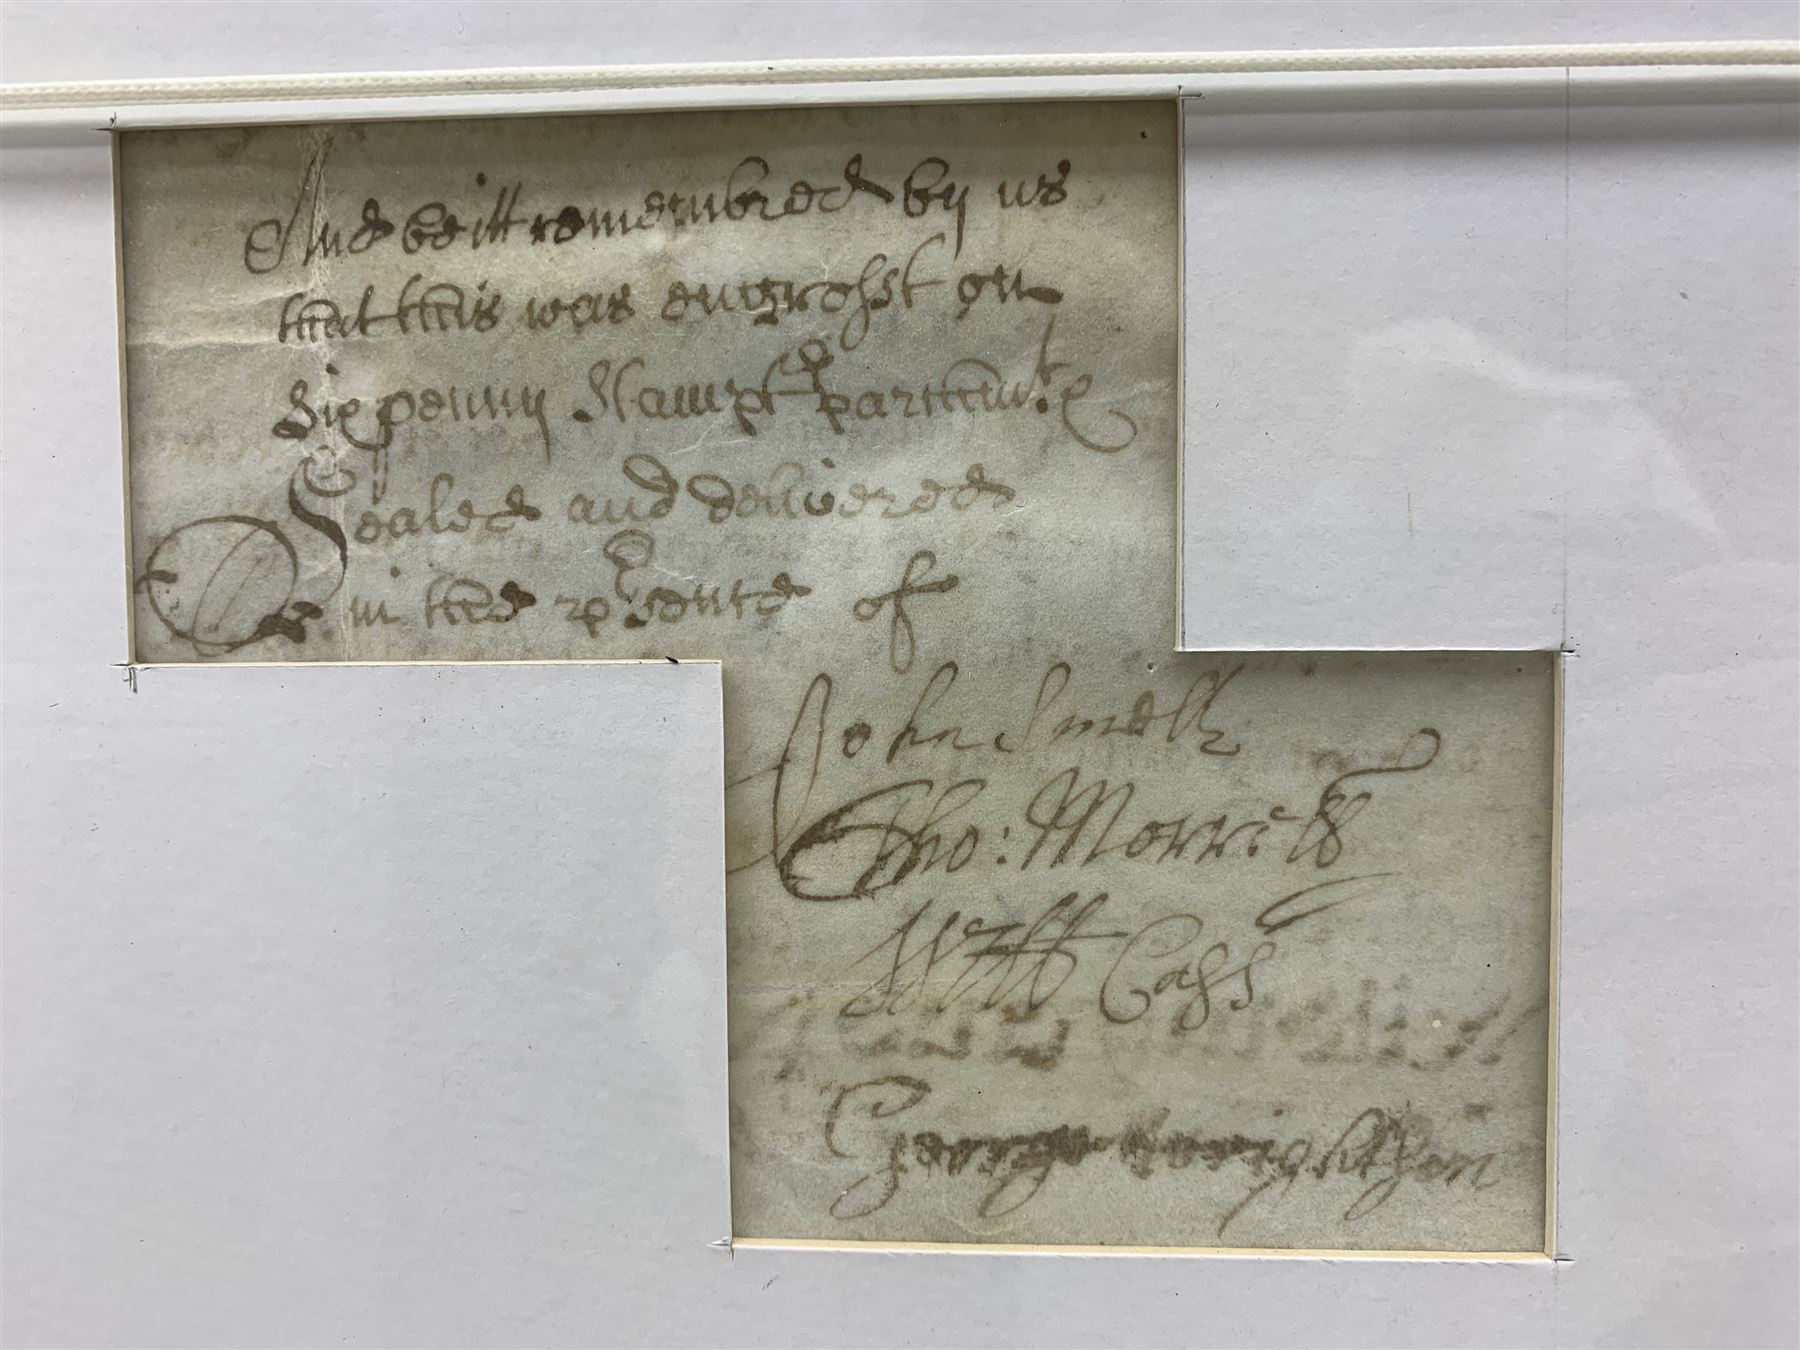 And be itt remembred by us
that this was engrosst on
Six penny Stampt parchmt.
Sealed and delivered
in the psence of
John Smelt
Tho: Morrell
Will Cass
George wrightson